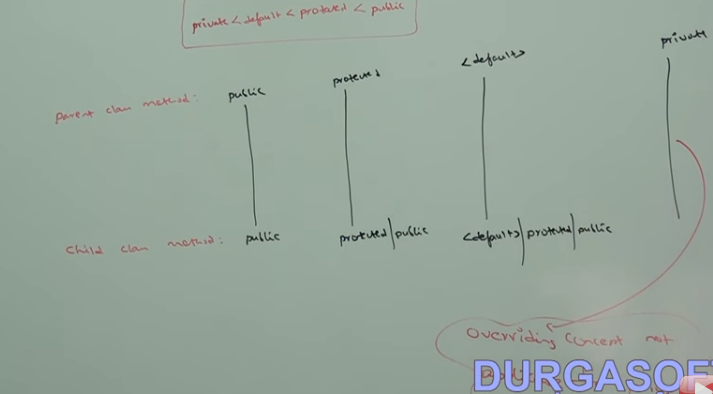 private < default < protected < public
<default>
private
parent class method: public protected
child class method: public protected | public <default> | protected | public
overriding concept not
DURGASOF